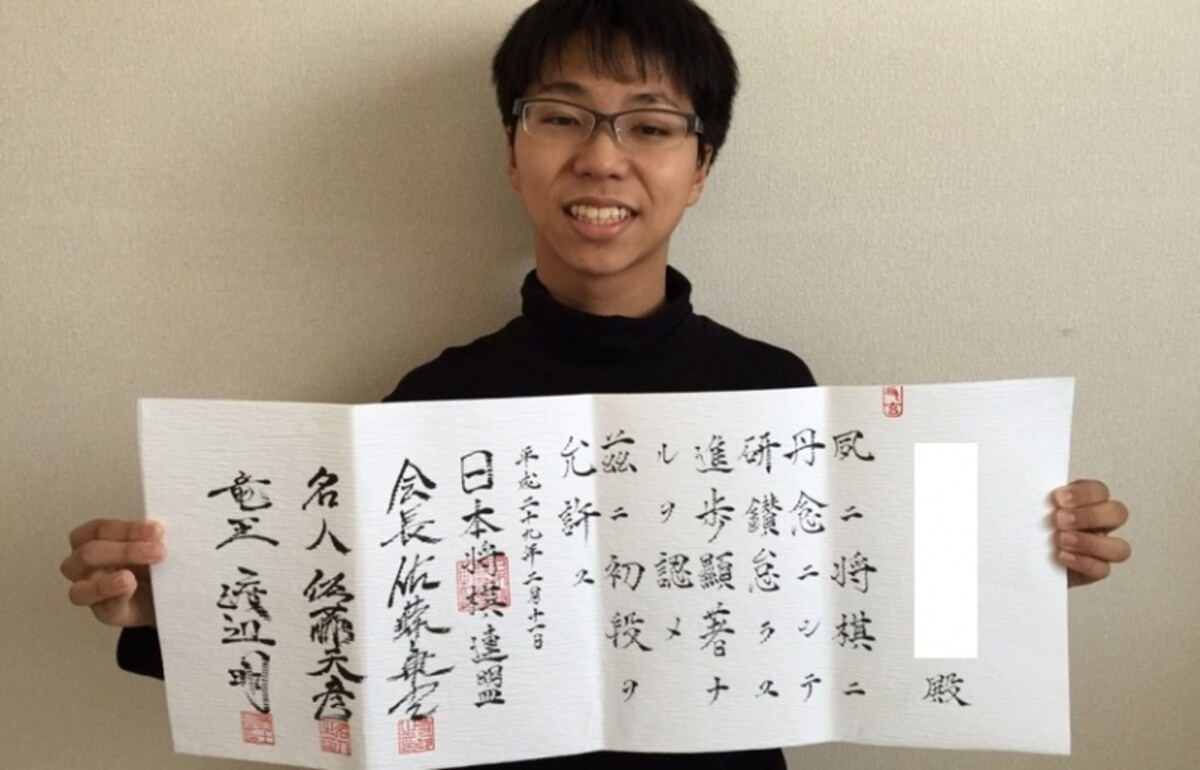 殿
夙ニ将棋ニ
丹念ニシテ
研鑽怠ラス
進歩顯著ナ
ルヲ認メ
茲ニ初段ヲ
允許ス
平成二十九年二月十一日
日本将棋連盟
会長 佐藤康光
名人 佐藤天彦
竜王 渡辺明